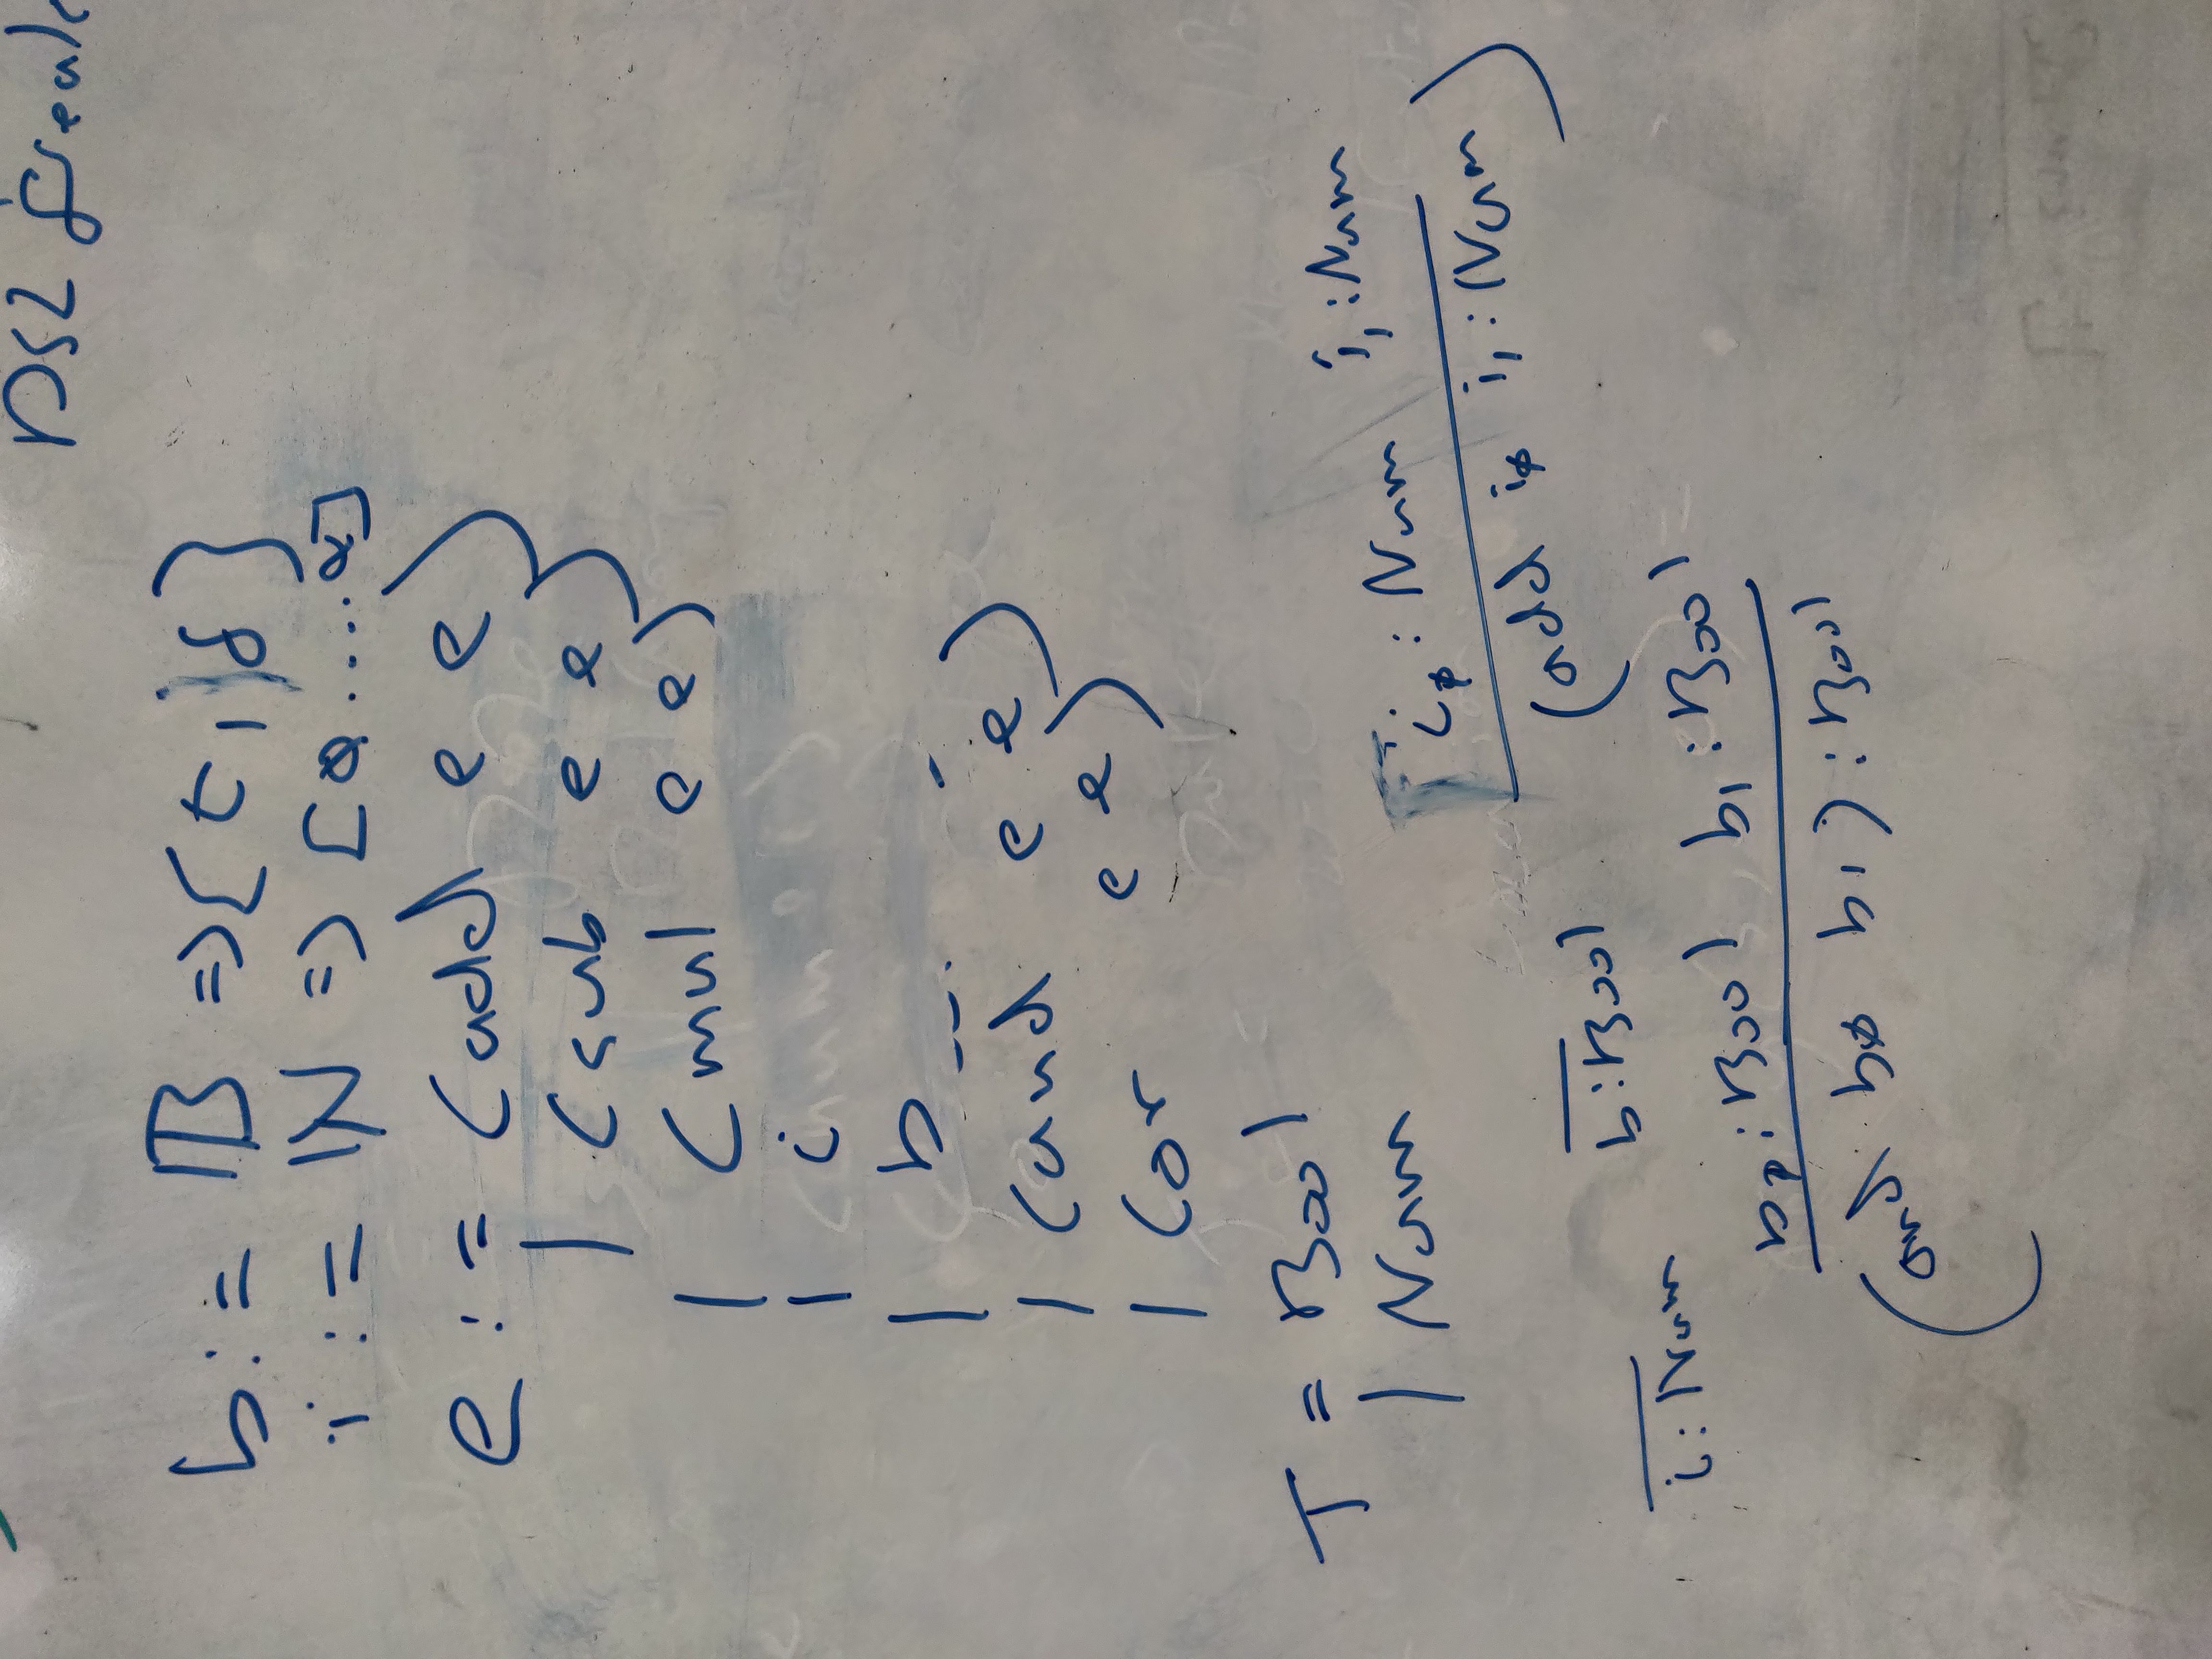 DSL
b := 𝔹 => { t, f }
i := ℕ => [ 0 .... ]
e := (add e e)
| (sub e e)
| (mul e e)
| i
| b
| (and e e)
| (or e e)
T = Bool
| Num
i0 : Num i1 : Num
(add i0 i1 : Num)
b : Bool
i : Num
b0 : Bool, b1 : Bool
(and b0 b1) : Bool